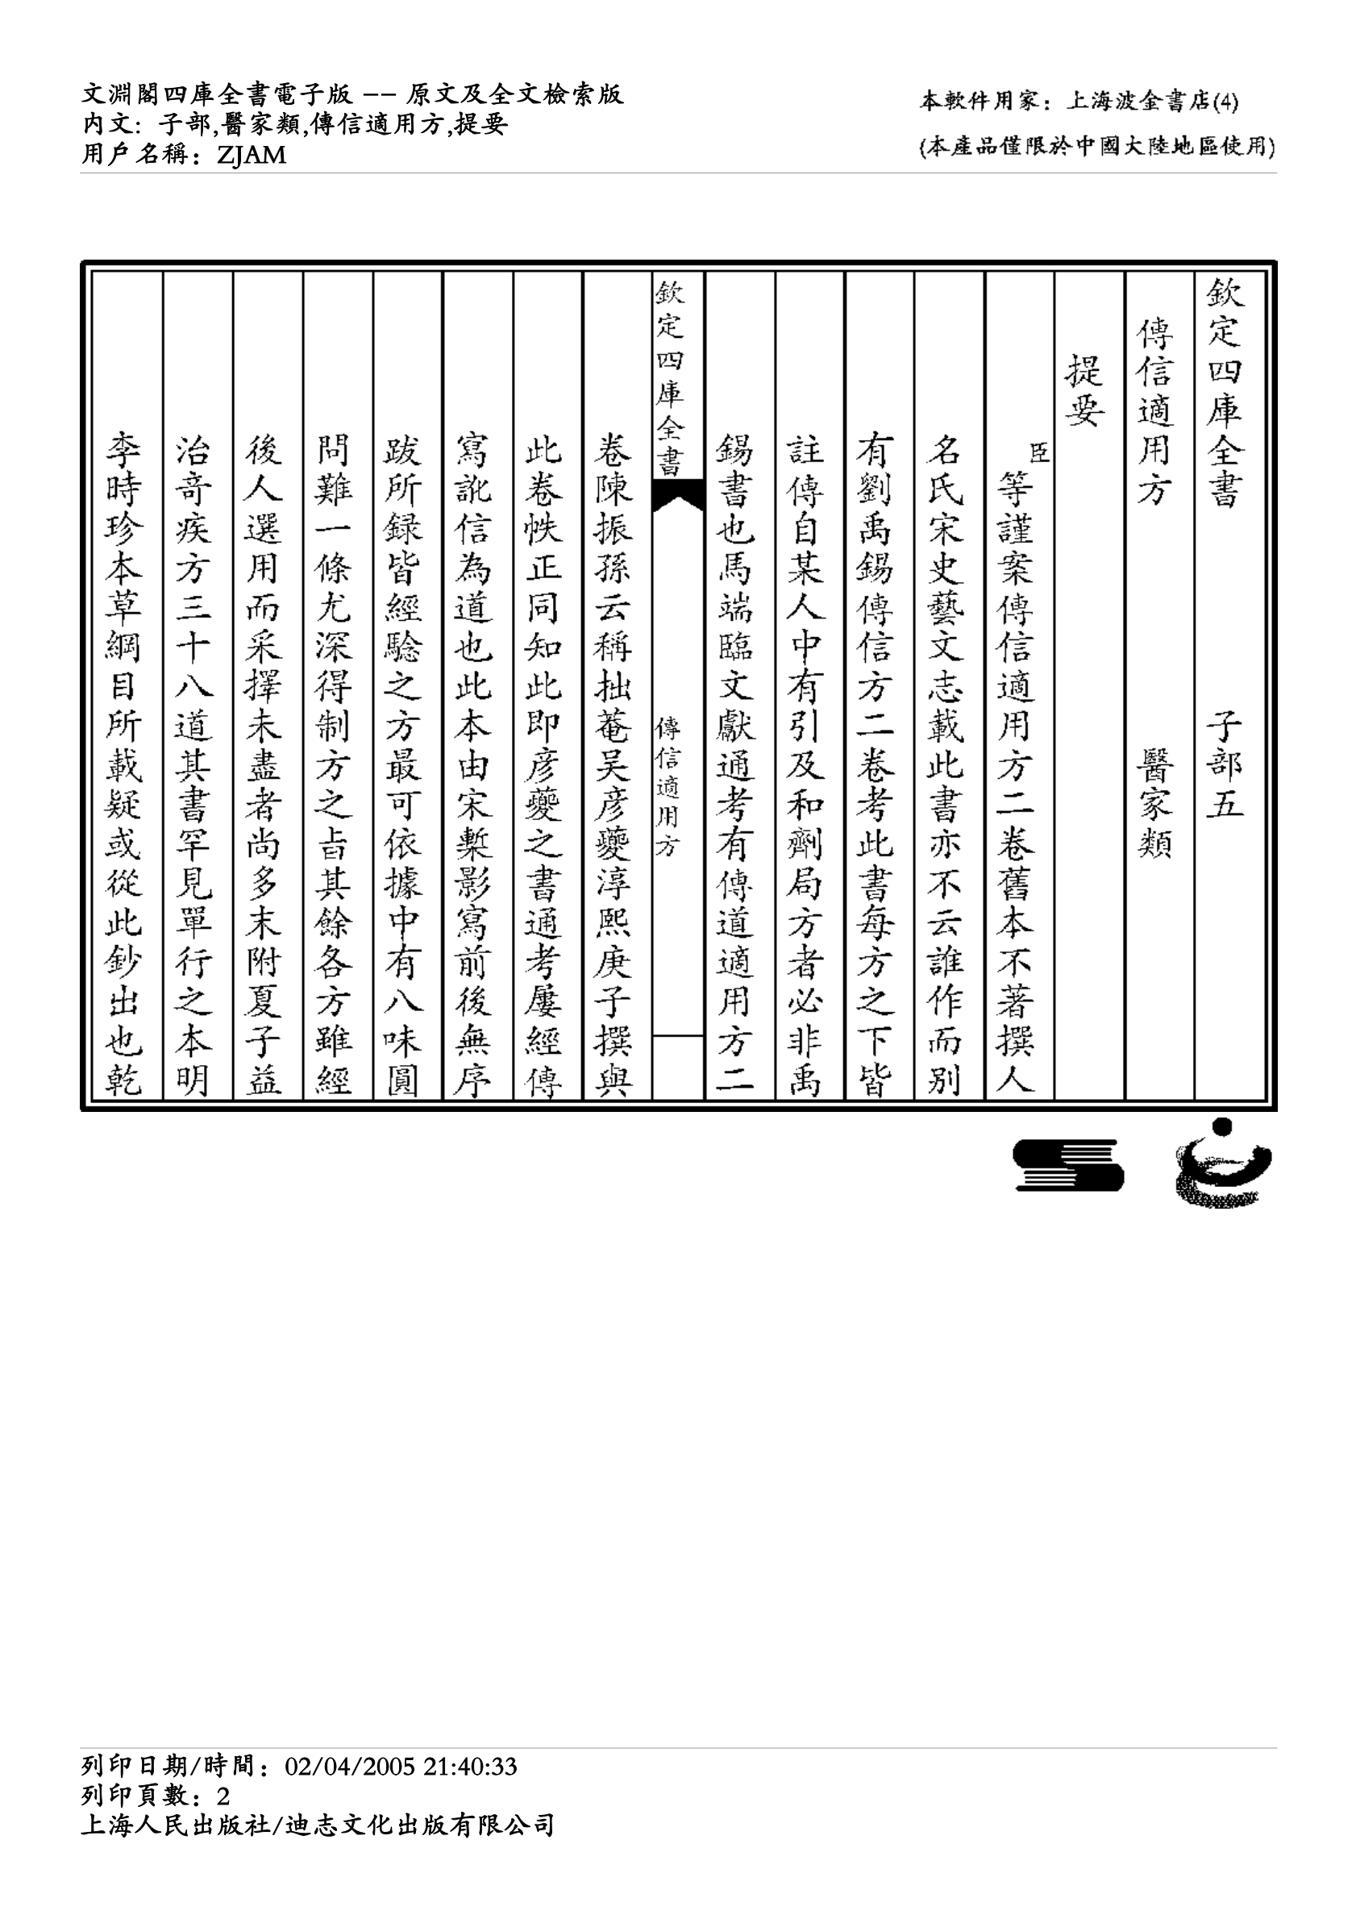 文淵閣四庫全書電子版 -- 原文及全文檢索版
內文：子部,醫家類,傳信適用方,提要
用戶名稱：ZJAM
本軟件用家：上海波金書店(4)
(本產品僅限於中國大陸地區使用)
欽定四庫全書 子部五
傳信適用方 醫家類
提要
臣等謹案傳信適用方二卷舊本不著撰人
名氏宋史藝文志載此書亦不云誰作而别
有劉禹錫傳信方二卷考此書每方之下皆
註傳自某人中有引及和劑局方者必非禹
錫書也馬端臨文獻通考有傳道適用方二
欽定四庫全書
傳信適用方
卷陳振孫云稱拙菴吴彦夔淳熙庚子撰與
此卷帙正同知此即彦夔之書通考屢經傳
寫訛信為道也此本由宋槧影寫前後無序
跋所録皆經騐之方最可依據中有八味圓
問難一條尤深得制方之㫖其餘各方雖經
後人選用而采擇未盡者尚多末附夏子益
治竒疾方三十八道其書罕見單行之本明
李時珍本草綱目所載疑或從此鈔出也乾
列印日期/時間：02/04/2005 21:40:33
列印頁數：2
上海人民出版社/迪志文化出版有限公司